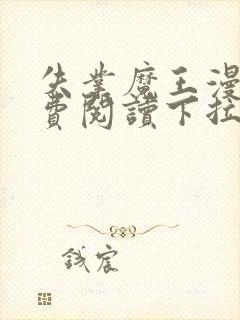 失業魔王漫
費閱讀下拉
鋮宸